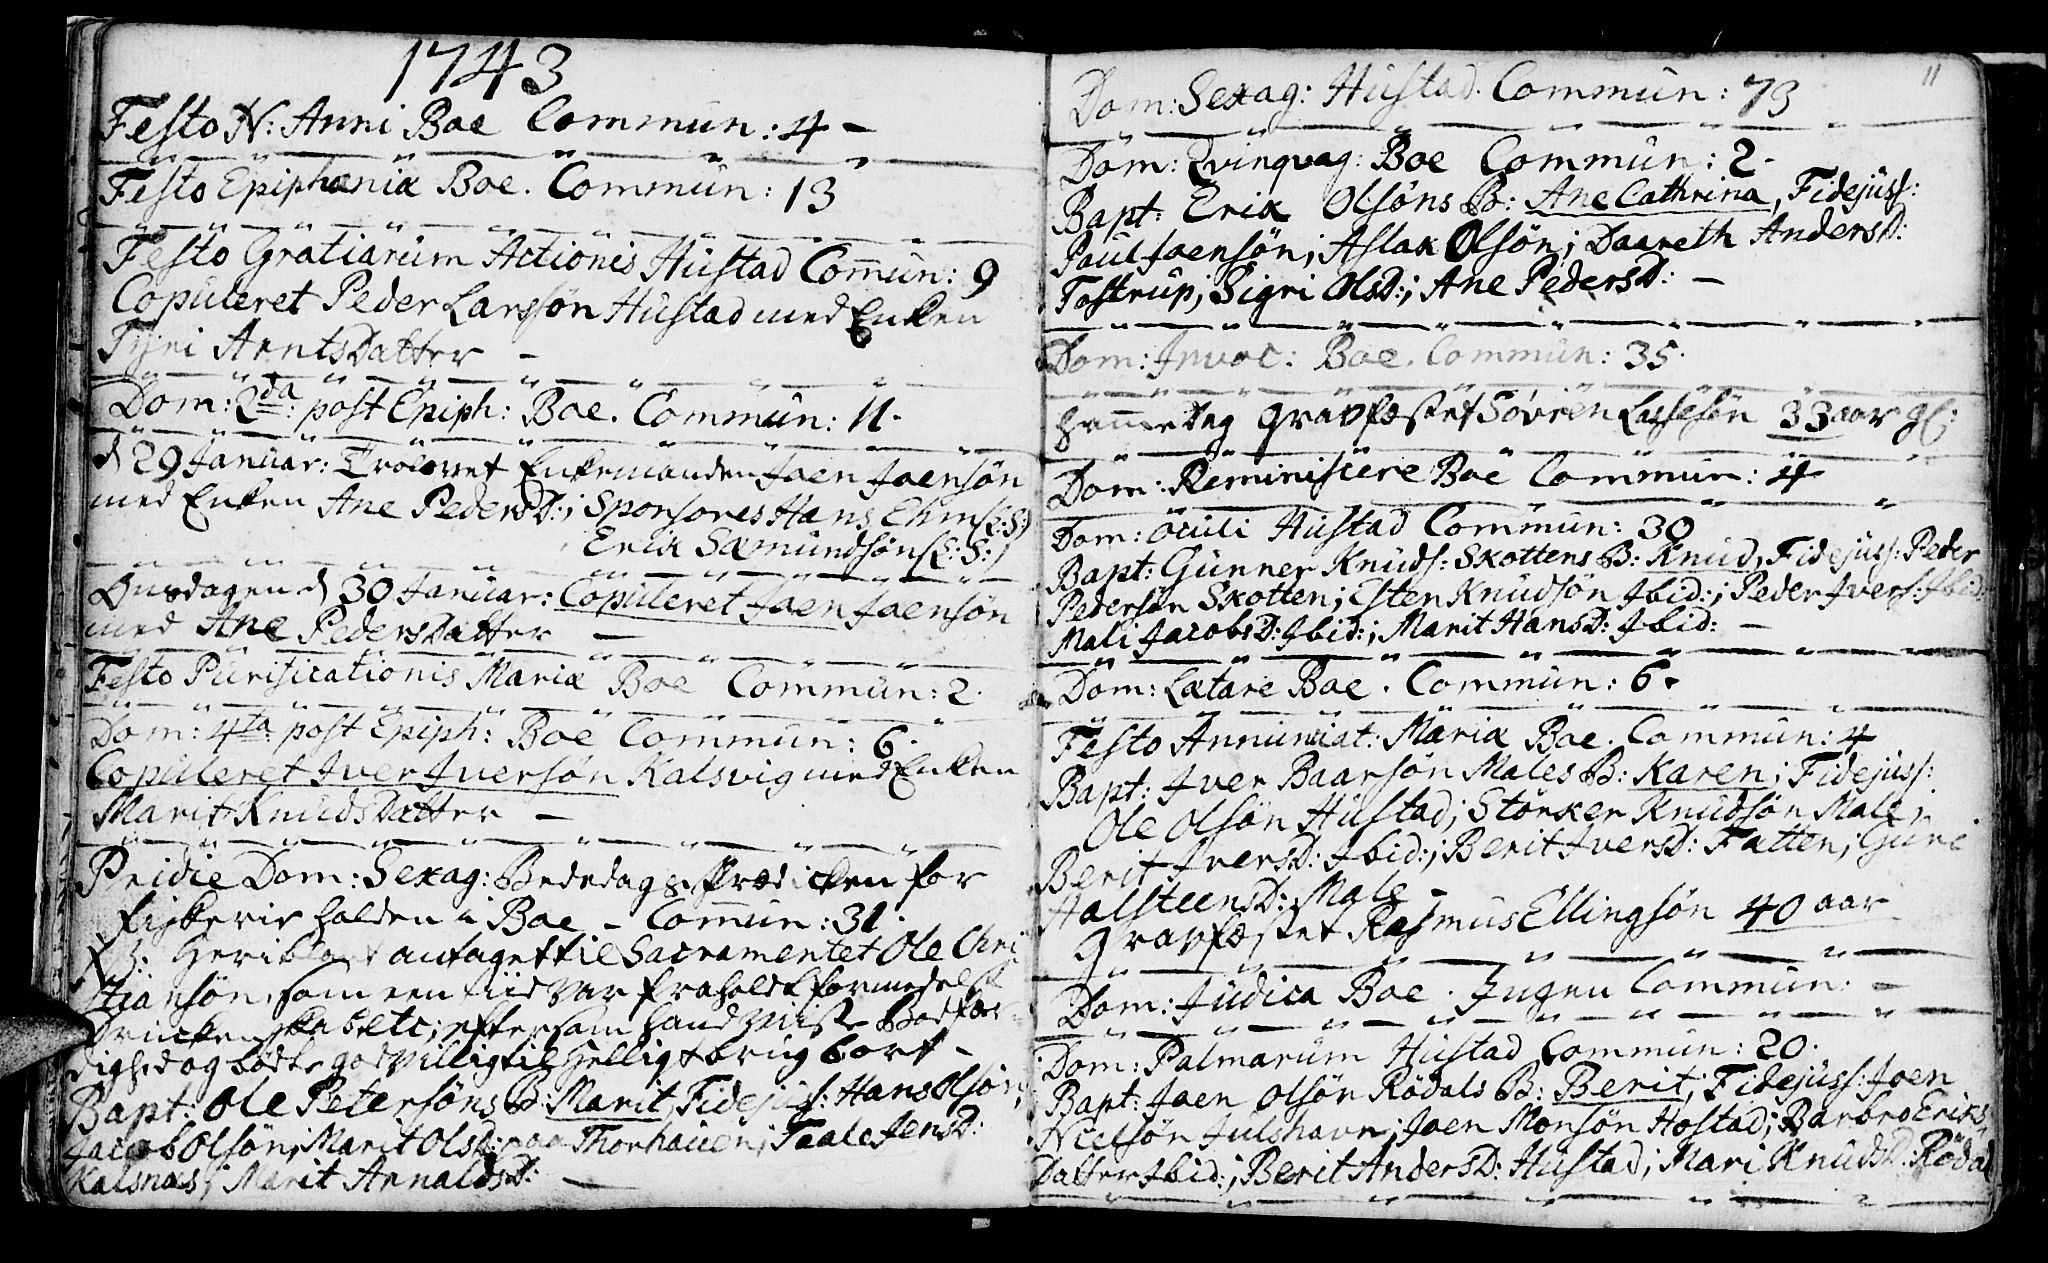 1743
Festo N: Anni Boe Commun: 4 –
Festo Epiphaniæ Boe. Commun: 13
Festo Gratiarum Actionis Hustad Com̄un: 9
Copuleret Peder Larssøn Hustad med Enken
Tyri Arntsdatter –
Dom: 2da: post Epiph: Boe. Commun: 11.
d 29 Januar: Trolovet Enkemanden Joen Joensøn
med Enken Ane PedersD:; Sponsores Hans (L:S:)
Erik Sæmundsøn (L:S:)
Onsdagen d 30 Januar: Copuleret Joen Joensøn
med Ane Pedersdatter –
Festo Purificationis Mariæ Boe Commun: 2.
Dom: 4ta: post Epiph: Boe Commun: 6.
Copuleret Iver Iversøn Kalsvig med Enken
Marit Knudsdatter –
Pridie Dom: Sexag: Bededags Prædicken for
Fiskerie holden i Boe – Com̄un: 31.
antaget til Sacramentet Ole Chri
stiansøn, som een tiid var fraholdt formedelst
Druckenskab etc; eftersom hand viste Bodfær-
dighed og bødte godvillig til Helligt brug bort –
Bapt: Ole Petersøns B: Marit, Fidejuss: Hans Olsøn,
Jacob Olsøn; Marit OlsD: paa Thorhauen; Taale JensD:
Kalsnæs; Marit ArnaldsD: –
11
Dom: Sexag: Hustad. Commun: 73
Dom: Qvinqvag: Boe Commun: 2.
Bapt: Erik Olsøns B: Ane Cathrina, Fidejuss:
Paul Joensøn; Aslak Olsøn; Daareth AndersD:
Tostrup; Sigri OlsD:; Ane PedersD: –
Dom: Invoc: Boe. Commun: 35.
Sam̄e Dag Gravfæstet Søvren Lassesøn 33 aar gl:
Dom: Reminiscere Boe Commun: 4
Dom: Oculi Hustad Commun: 30
Bapt: Gunner Knuds: Skottens B: Knud, Fidejuss: Peder
Pedersøn Skotten; Esten Knudsøn Ibid:; Peder Ivers: Ibid:
Mali JacobsD: Ibid:; Marit HansD: Ibid: –
Dom: Lætare Boe. Commun: 6.
Festo Annunciat: Mariæ Boe. Commun: 4
Bapt: Iver Baarsøn Males B: Karen; Fidejuss:
Ole Olsøn Hustad; Størker Knudsøn Male;
Berit IversD: Ibid:; Berit IversD: Fatten; Guri
HalsteensD: Male –
Gravfæstet Rasmus Ellingsøn 40 aar
Dom: Judica Boe. Ingen Commun: –
Dom: Palmarum Hustad Commun: 20.
Bapt: Joen Olsøn Rødals B: Berit; Fidejuss: Joen
Nielsøn Julshavn; Joen Monsøn Hostad; Barbro Eriks
Datter Ibid:; Berit AndersD: Hustad; Mari KnudsD: Rødal